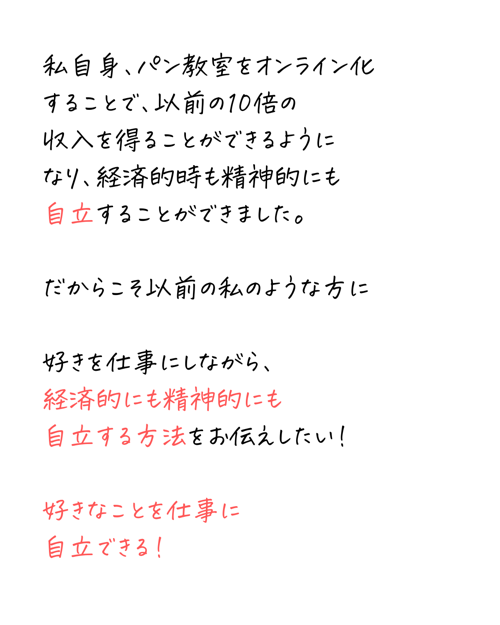 私自身、パン教室をオンライン化
することで、以前の10倍の
収入を得ることができるように
なり、経済的時も精神的にも
自立することができました。
だからこそ以前の私のような方に
好きを仕事にしながら、
経済的にも精神的にも
自立する方法をお伝えしたい！
好きなことを仕事に
自立できる！